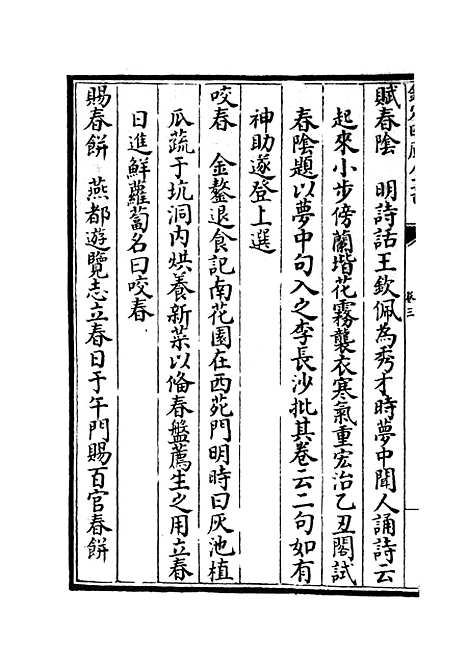 賦春陰　明詩話王欽佩為秀才時夢中聞人誦詩云
起來小步傍蘭堦花霧襲衣寒氣重宏治乙丑閣試
春陰題以夢中句入之李長沙批其卷云二句如有
神助遂登上選
咬春　金鰲退食記南花園在西苑門明時曰灰池植
瓜蔬于坑洞内烘養新菜以偹春盤薦生之用立春
日進鮮蘿蔔名曰咬春
賜春餅　燕都遊覽志立春日于午門賜百官春餅
卷三